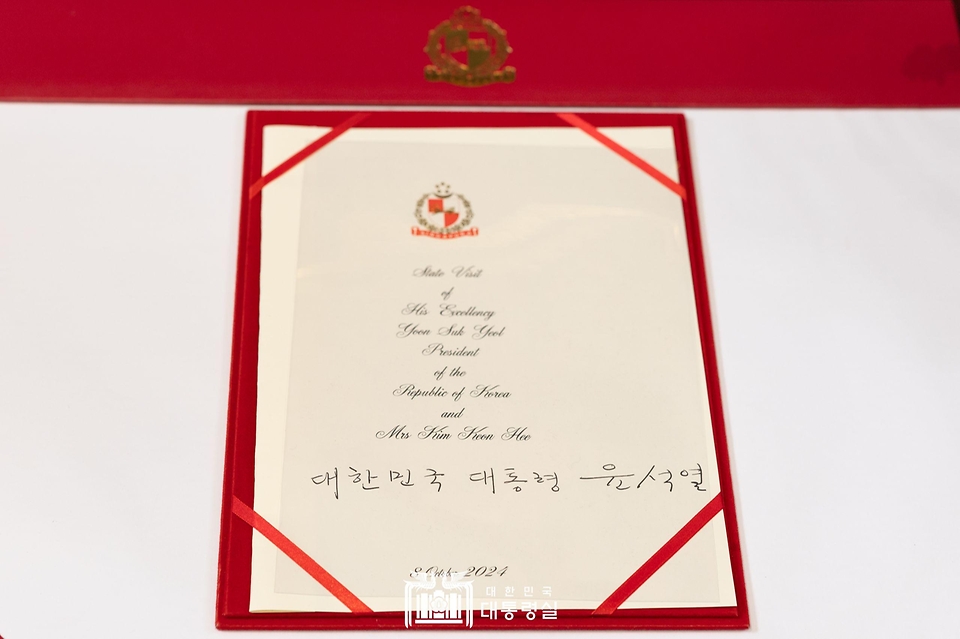 State Visit
of
His Excellency
Yoon Suk Yeol
President
of the
Republic of Korea
and
Mrs Kim Keon Hee
대한민국 대통령 윤석열
8 October 2024
대한민국
대통령실